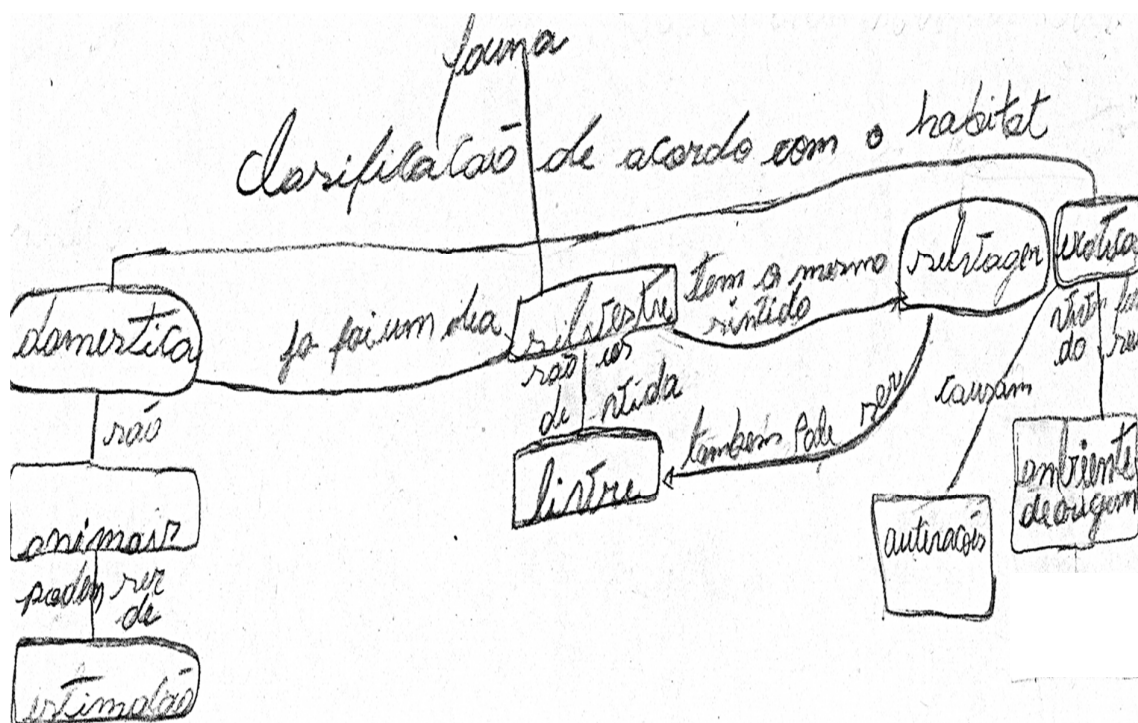 fauna
Clasificacão de acordo com o habitat
domestica
ja foi um dia
silvestre
tem o mesmo
sintido
selvagen
exotica
são
são
de vida
livre
tambem pode ser
causam
do
auteracões
ambiente
de origem
animais
podem ser
de
estimacão